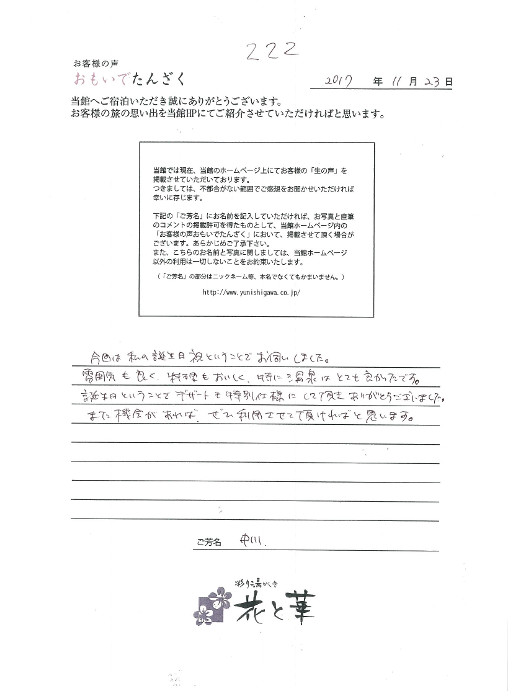 222
お客様の声
おもいでたんざく
2017 年 11 月 23 日
当館へご宿泊いただき誠にありがとうございます。
お客様の旅の思い出を当館HPにてご紹介させていただければと思います。
当館では現在、当館のホームページ上にてお客様の「生の声」を
掲載させていただいております。
つきましては、不都合がない範囲でご感想をお聞かせいただければ
幸いに存じます。
下記の「ご芳名」にお名前を記入していただければ、お写真と直筆
のコメントの掲載許可を得たものとして、当館ホームページ内の
「お客様の声おもいでたんざく」において、掲載させて頂く場合が
ございます。あらかじめご了承下さい。
また、こちらのお名前と写真に関しましては、当館ホームページ
以外の利用は一切しないことをお約束いたします。
(「ご芳名」の部分はニックネーム等、本名でなくてもかまいません。)
http://www.yunishigawa.co.jp/
今回は私の誕生日祝ということでお伺いしました。
雰囲気も良く、料理もおいしく、特に温泉はとても良かったです。
誕生日ということでデザートも特別仕様にして頂きありがとうございました。
また機会があれば、ぜひ利用させて頂ければと思います。
ご芳名 中川
彩り湯かしき
花と華